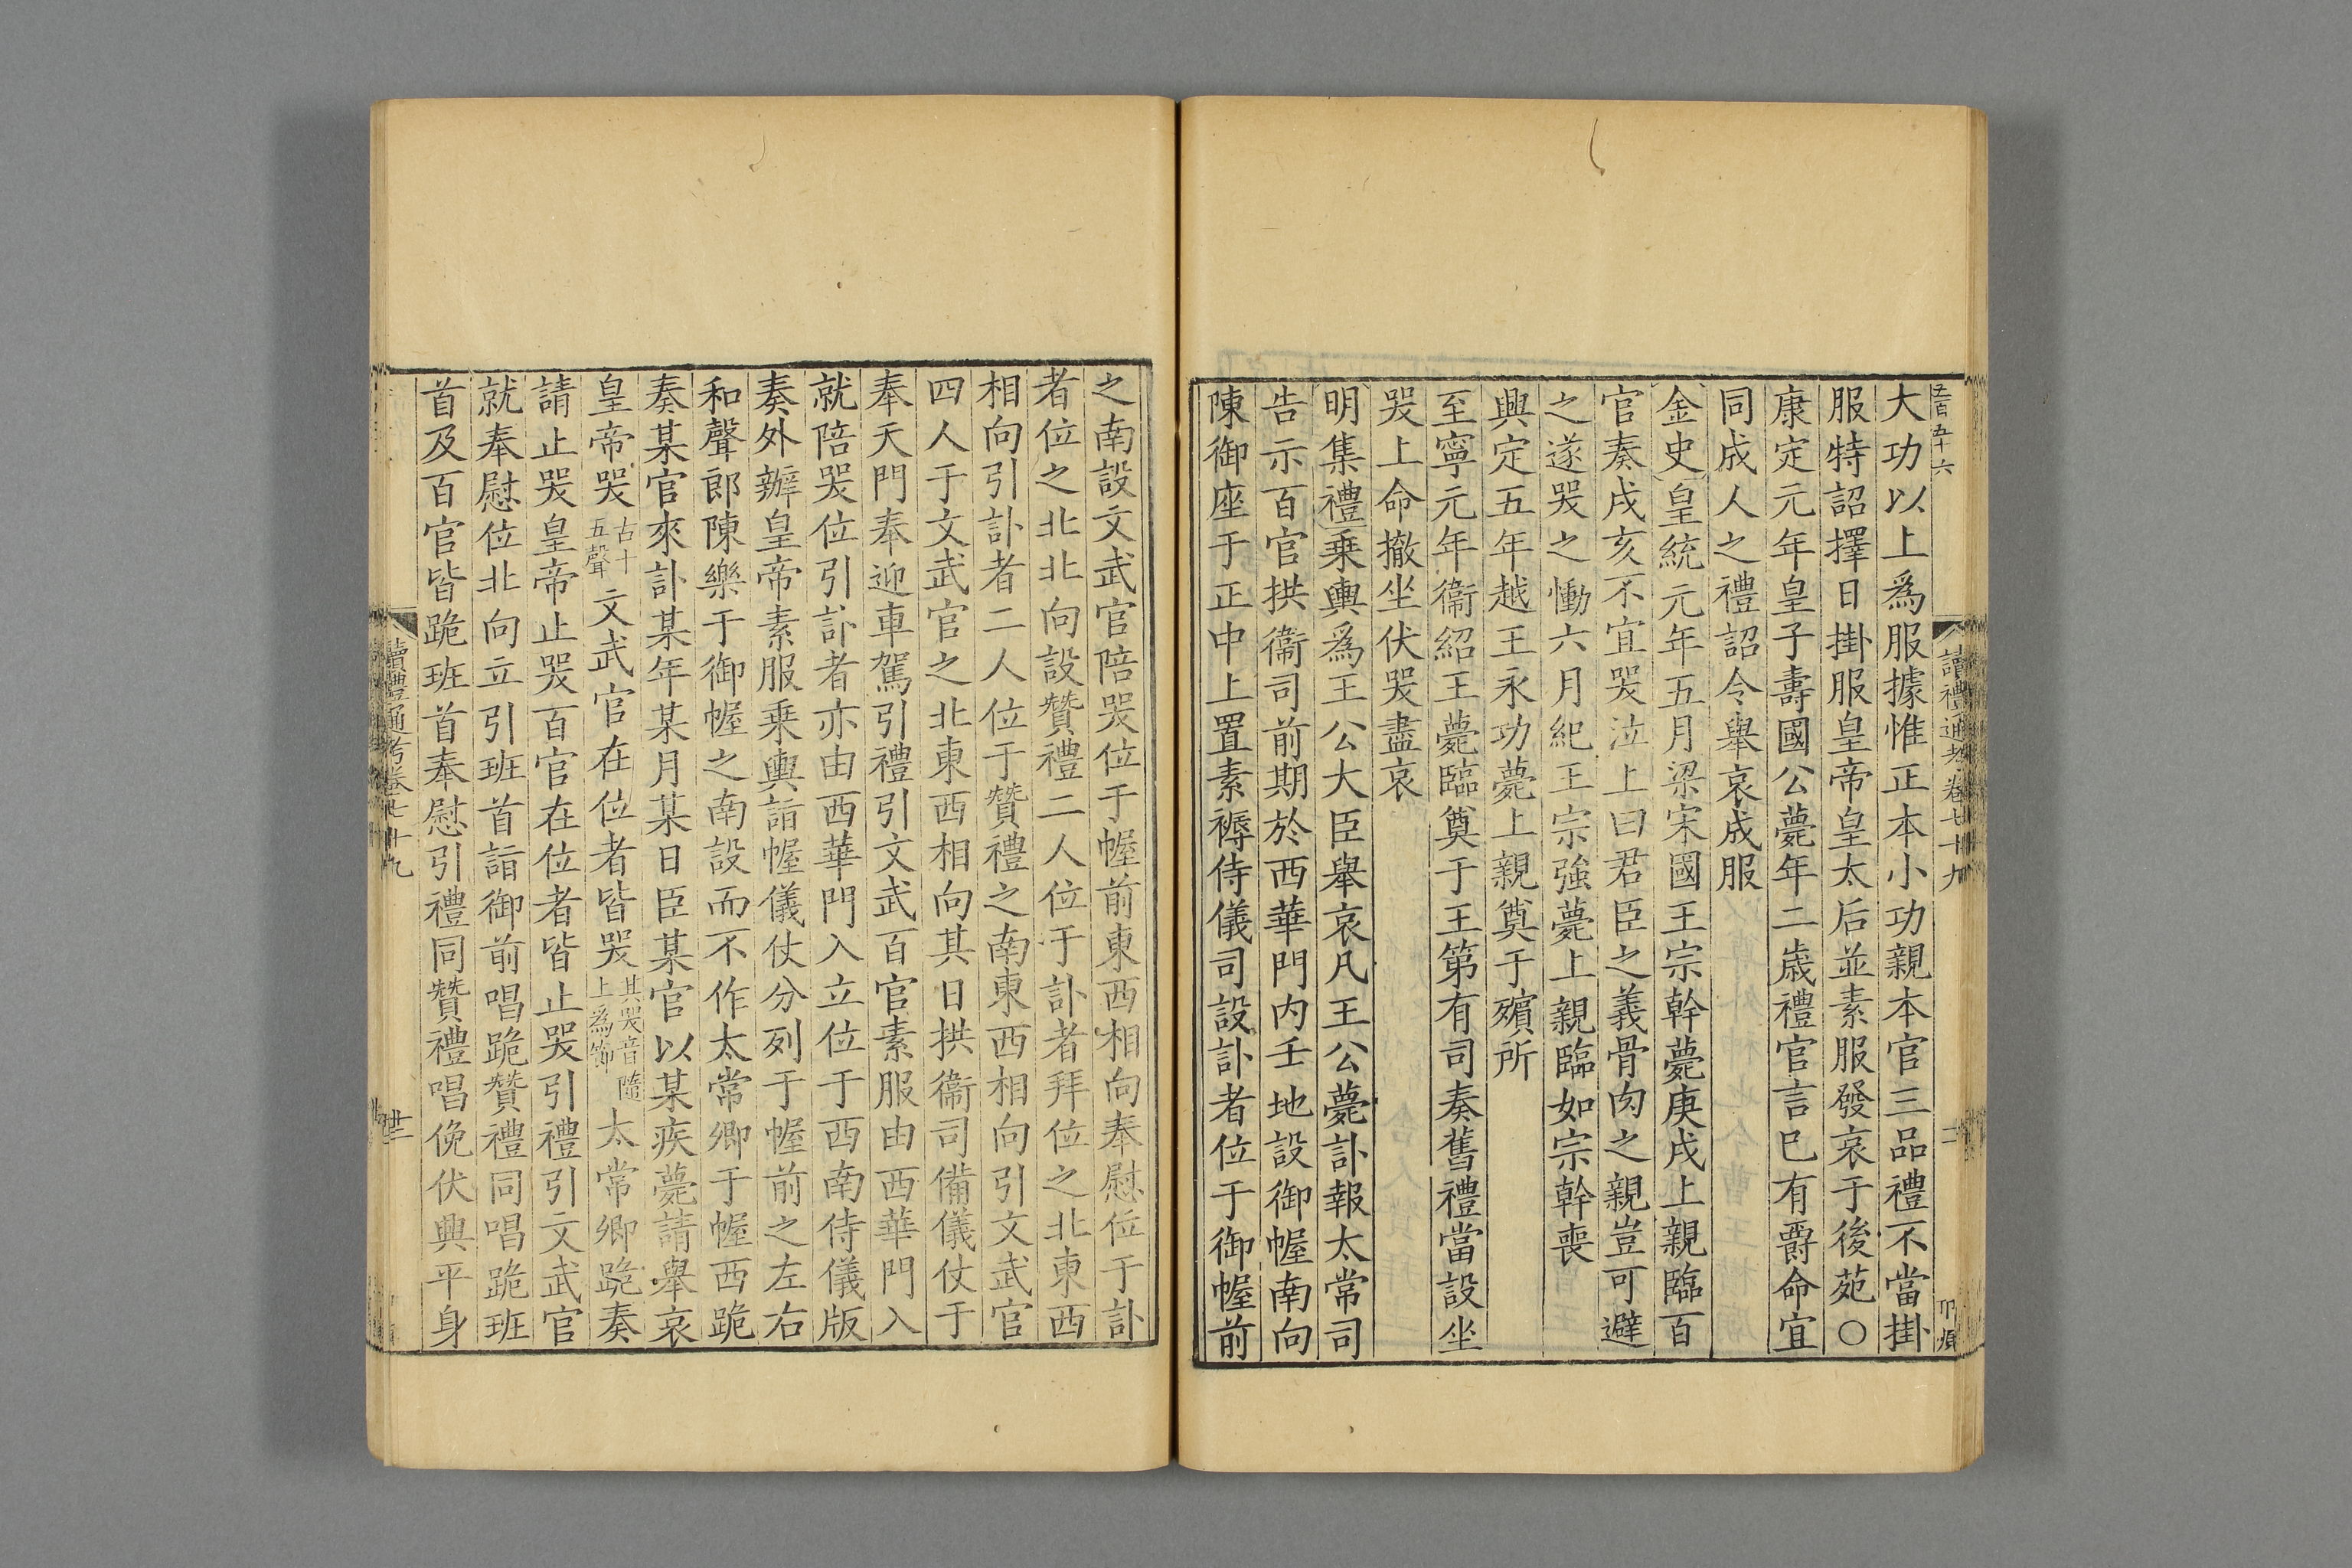 五百五十六
讀禮通考卷七十九
大功以上爲服據惟正本小功親本官三品禮不當掛
服特詔擇日掛服皇帝皇太后並素服發哀于後苑○
康定元年皇子壽國公薨年二歲禮官言巳有爵命宜
同成人之禮詔令舉哀成服
金史皇統元年五月梁宋國王宗幹薨庚戌上親臨百
官奏戌亥不宜哭泣上曰君臣之義骨肉之親豈可避
之遂哭之慟六月紀王宗強薨上親臨如宗幹喪
興定五年越王永功薨上親奠于殯所
至寧元年衞紹王薨臨奠于王第有司奏舊禮當設坐
哭上命撤坐伏哭盡哀
明集禮乗輿爲王公大臣舉哀凡王公薨訃報太常司
告示百官拱衞司前期於西華門内壬地設御幄南向
陳御座于正中上置素褥侍儀司設訃者位于御幄前
之南設文武官陪哭位于幄前東西相向奉慰位于訃
者位之北北向設贊禮二人位于訃者拜位之北東西
相向引訃者二人位于贊禮之南東西相向引文武官
四人于文武官之北東西相向其日拱衞司備儀仗于
奉天門奉迎車駕引禮引文武百官素服由西華門入
就陪哭位引訃者亦由西華門入立位于西南侍儀版
奏外辦皇帝素服乗輿詣幄儀仗分列于幄前之左右
和聲郎陳樂于御幄之南設而不作太常卿于幄西跪
奏某官來訃某年某月某日臣某官以某疾薨請舉哀
皇帝哭古十五聲文武官在位者皆哭其哭音隨上爲節太常卿跪奏
請止哭皇帝止哭百官在位者皆止哭引禮引文武官
就奉慰位北向立引班首詣御前唱跪贊禮同唱跪班
首及百官皆跪班首奉慰引禮同贊禮唱俛伏興平身
讀禮通考卷七十九